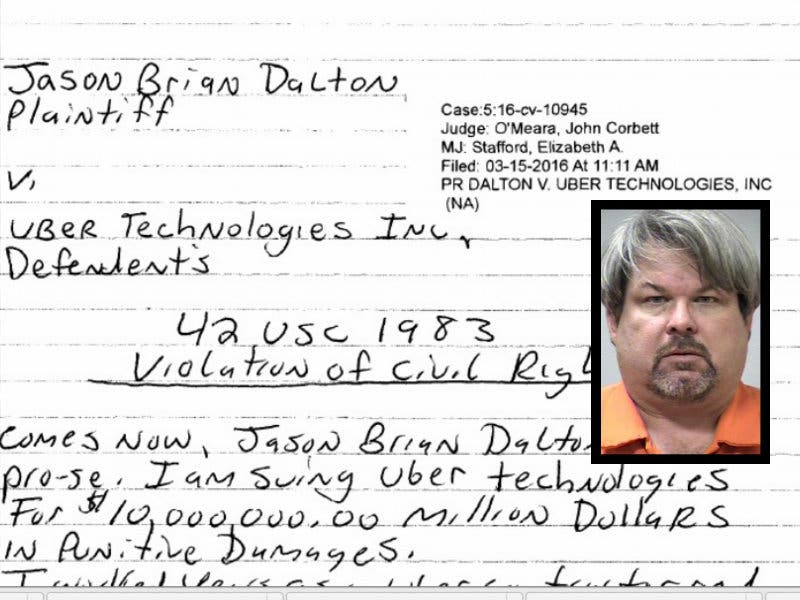 Jason Brian Dalton
Plaintiff
v.
Uber Technologies Inc,
Defendent's
Case:5:16-cv-10945
Judge: O'Meara, John Corbett
MJ: Stafford, Elizabeth A.
Filed: 03-15-2016 At 11:11 AM
PR DALTON V. UBER TECHNOLOGIES, INC
(NA)
42 USC 1983
Violation of Civil Rig
Comes Now, Jason Brian Dalto
pro-se. I am suing Uber technologies
For $10,000,000.00 million Dollars
in Punitive Damages.